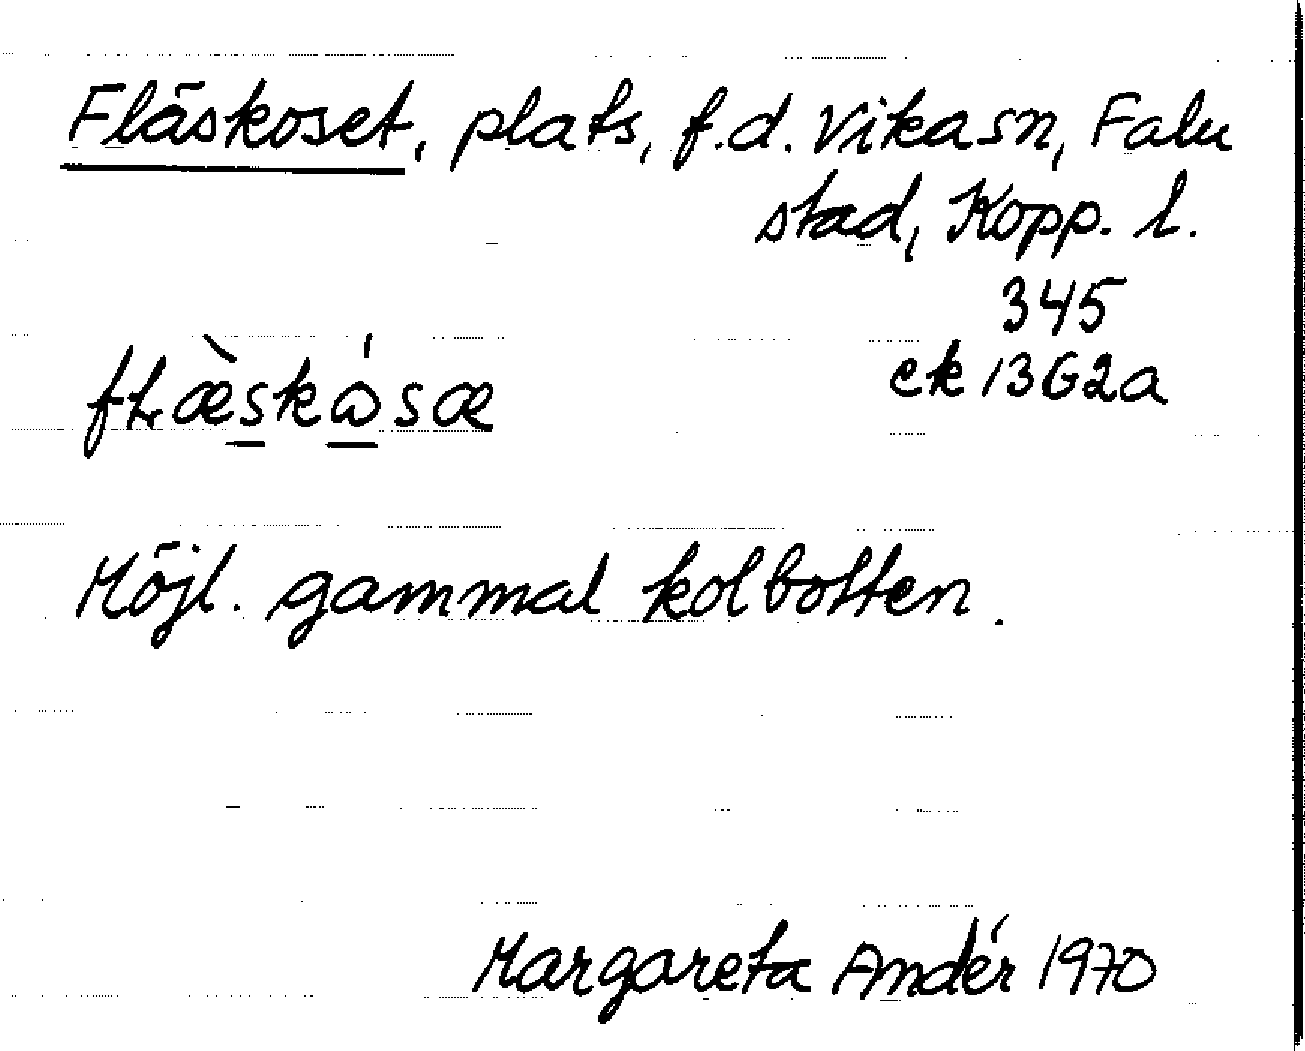 Fläskoset, plats, f.d. Vikasn, Falu
stad, Kopp. l.
345
ek 13G2a
Möjl. gammal kolbotten.
Margareta Andér 1970